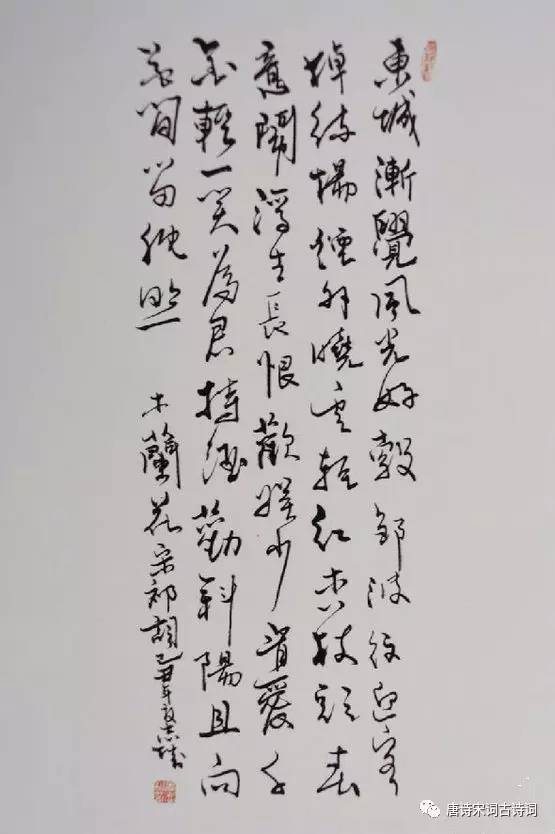 東城漸覺風光好縠皺波紋迎客
棹綠楊煙外曉雲輕紅杏枝頭春
意鬧浮生長恨歡娛少肯愛千
金輕一笑為君持酒勸斜陽且向
花間留晚照
木蘭花宋祁詞己丑年
唐诗宋词古诗词